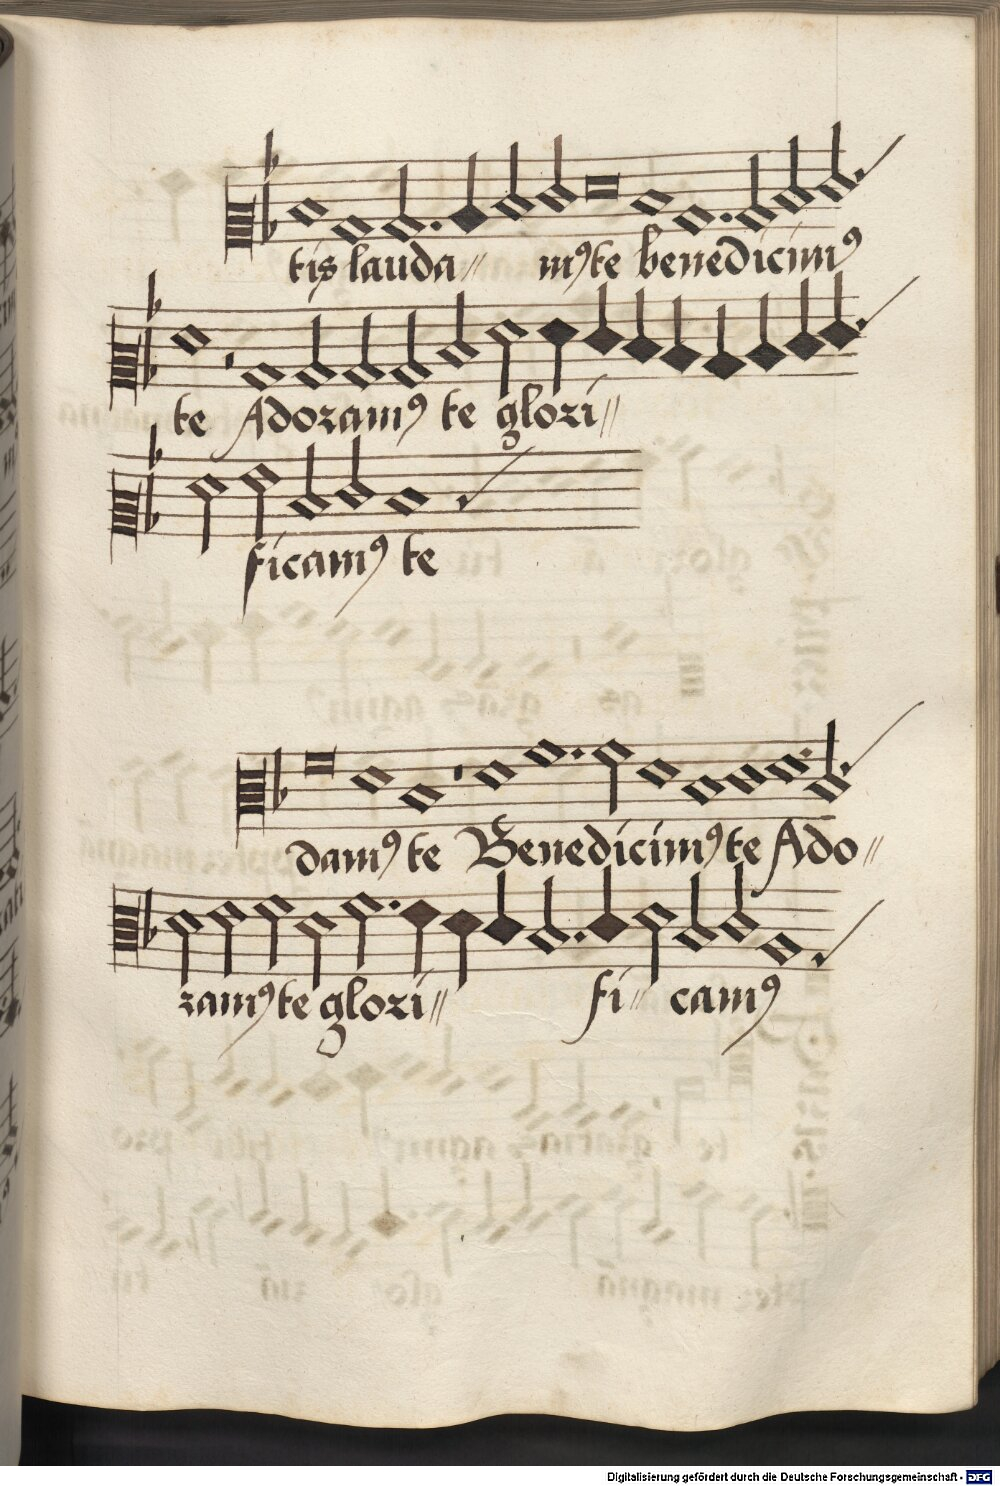 tis lauda〃 mꝰ te benedicimꝰ
te Adoramꝰ te glori〃
ficamꝰ te
damꝰ te Benedicimꝰ te Ado〃
ramꝰ te glori〃 fi〃 camꝰ
Digitalisierung gefördert durch die Deutsche Forschungsgemeinschaft - DFG